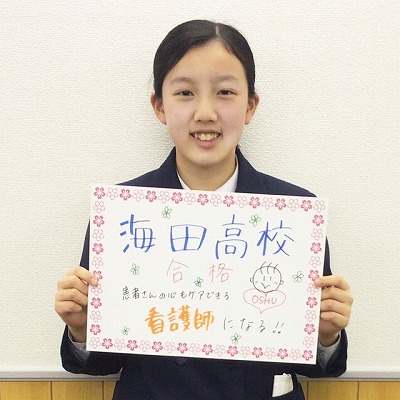 海田高校
合格
OSHU
患者さんの心もケアできる
看護師になる!!